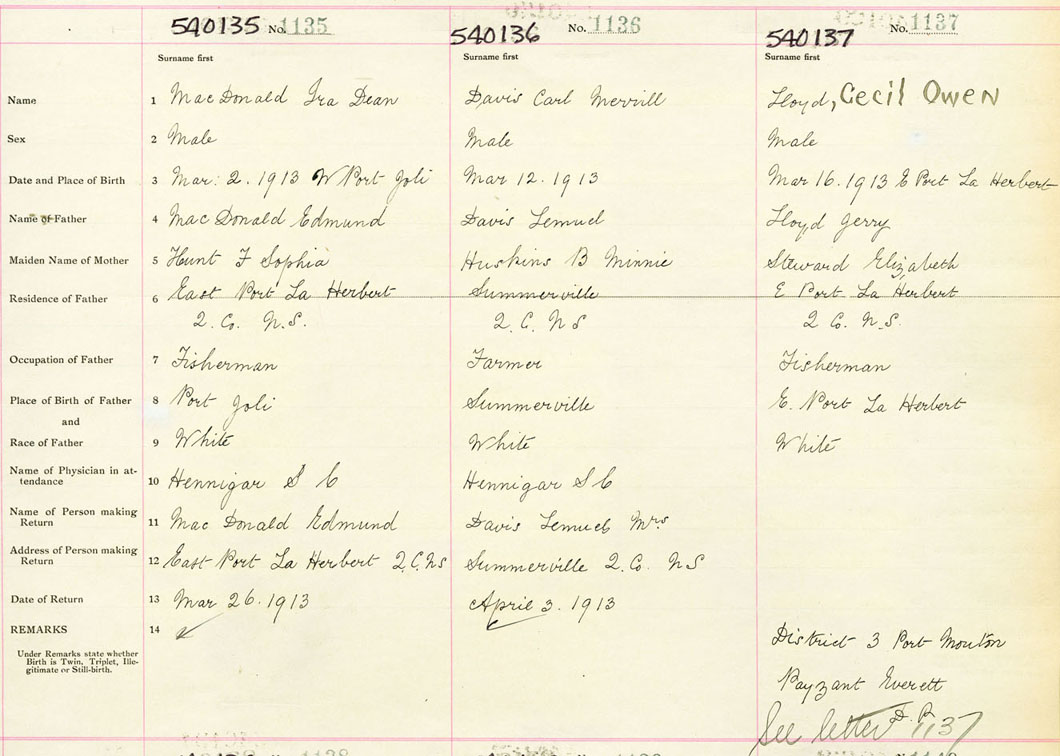 540135 No. 1135 540136 No. 1136 540137 No. 1137
Surname first Surname first Surname first
Name 1 MacDonald Ira Dean Davis Carl Merrill Lloyd, Cecil Owen
Sex 2 Male Male Male
Date and Place of Birth 3 Mar. 2. 1913 W Port Joli Mar 12. 1913 Mar 16. 1913 E Port La Herbert
Name of Father 4 Mac Donald Edmund Davis Lemuel Lloyd Jerry
Maiden Name of Mother 5 Hunt F Sophia Huskins B Minnie Steward Elizabeth
Residence of Father 6 East Port La Herbert Summerville E Port La Herbert
Q. Co. N.S. Q. C. N S Q Co. N.S.
Occupation of Father 7 Fisherman Farmer Fisherman
Place of Birth of Father 8 Port Joli Summerville E. Port La Herbert
and
Race of Father 9 White White White
Name of Physician in at-
tendance 10 Hennigar S C Hennigar S C
Name of Person making
Return 11 Mac Donald Edmund Davis Lemuel Mrs
Address of Person making
Return 12 East Port La Herbert Q.C.N S Summerville Q. Co. N S
Date of Return 13 Mar 26. 1913 April 3. 1913
REMARKS 14
Under Remarks state whether
Birth is Twin, Triplet, Ille-
gitimate or Still-birth.
District 3 Port Mouton
Payzant Everett
See letter D. R 1137